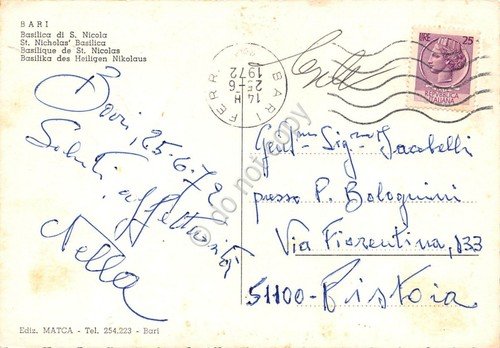 BARI
Basilica di S. Nicola
St. Nicholas' Basilica
Basilique de St. Nicolas
Basilika des Heiligen Nikolaus
BARI FERR.
14 H
25-6
1972
LIRE 25
REPUBBLICA
ITALIANA
Bari, 25.6.72
Saluti affettuosità
Nella
Gent.ma Sig.na Jacobelli
presso P. Bolognini
Via Fiorentina, 133
51100-Pistoia
Ediz. MATCA - Tel. 254.223 - Bari
© do not copy